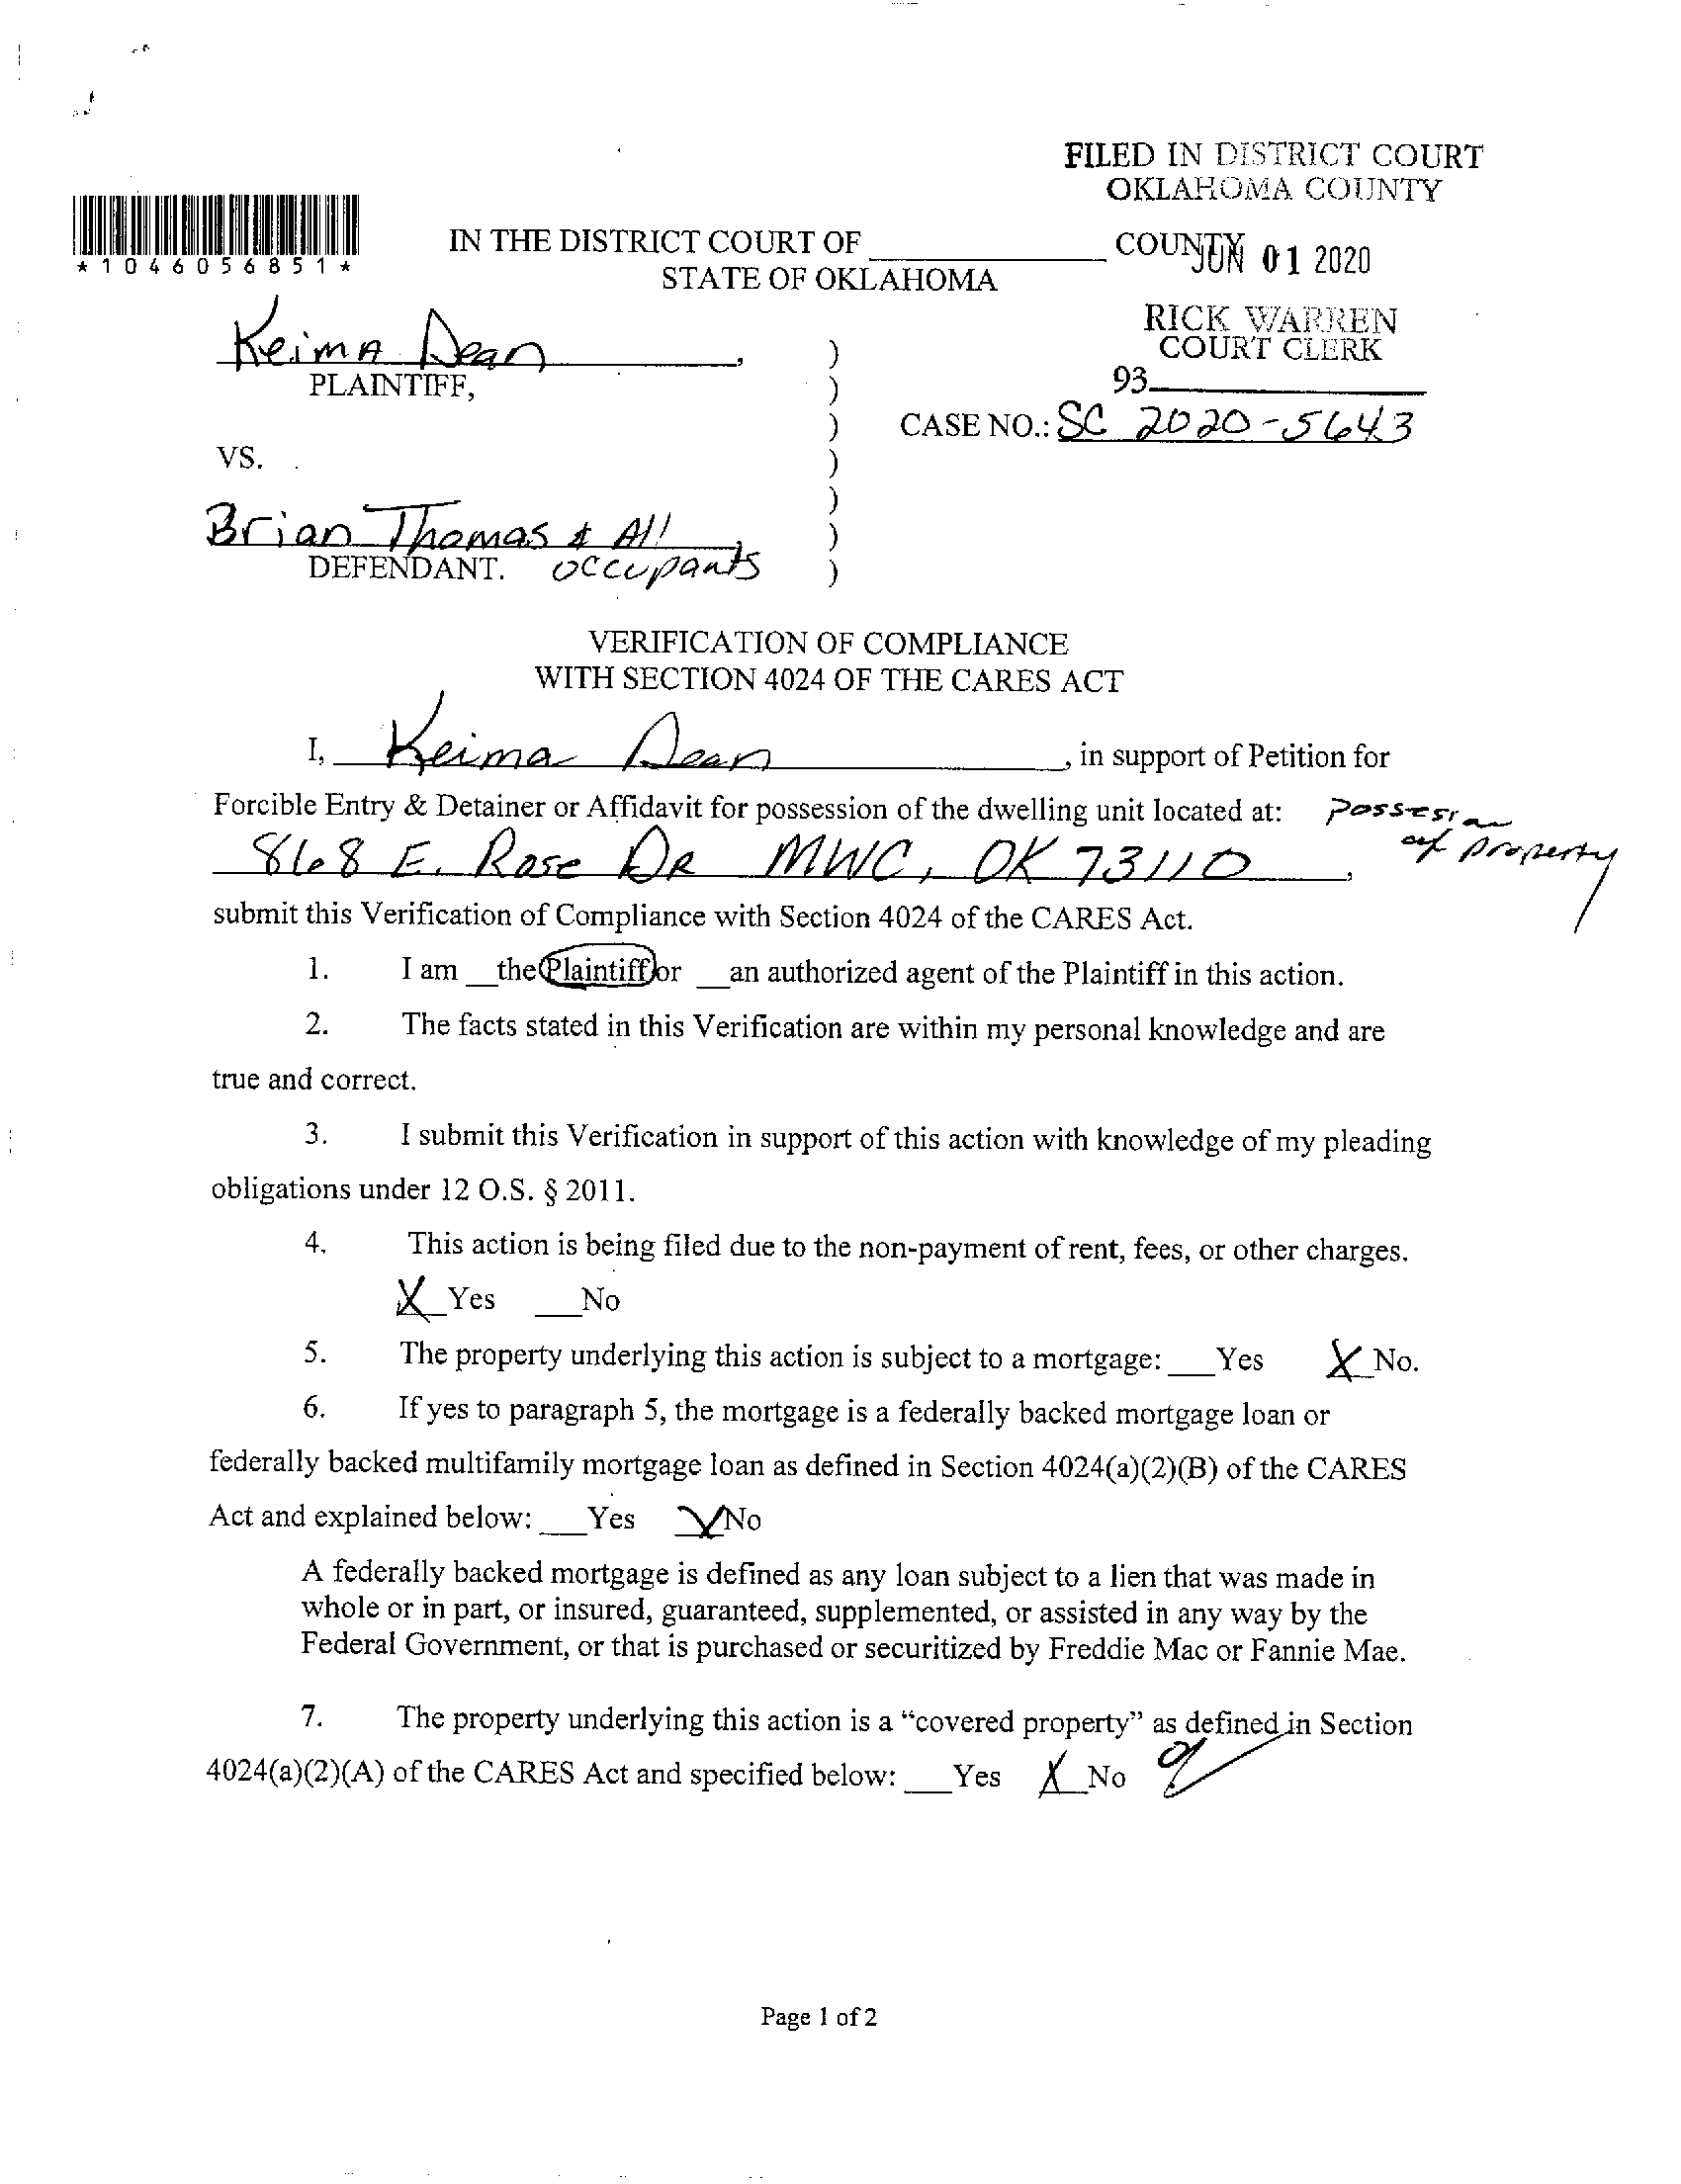 FILED IN DISTRICT COURT
OKLAHOMA COUNTY
*1046056851*
IN THE DISTRICT COURT OF ____________ COUNTY
JUN 01 2020
STATE OF OKLAHOMA
RICK WARREN
COURT CLERK
93____________
Keima Dean,
PLAINTIFF,
)
)
)
CASE NO.: SC 2020-5643
VS.
)
)
Brian Thomas & All
)
DEFENDANT. occupants
)
VERIFICATION OF COMPLIANCE
WITH SECTION 4024 OF THE CARES ACT
I, Keima Dean, in support of Petition for
Forcible Entry & Detainer or Affidavit for possession of the dwelling unit located at: Possesion
of property
868 E. Rose DR MWC, OK 73110,
submit this Verification of Compliance with Section 4024 of the CARES Act.
1. I am __the Plaintiff or __an authorized agent of the Plaintiff in this action.
2. The facts stated in this Verification are within my personal knowledge and are
true and correct.
3. I submit this Verification in support of this action with knowledge of my pleading
obligations under 12 O.S. § 2011.
4. This action is being filed due to the non-payment of rent, fees, or other charges.
X Yes ___No
5. The property underlying this action is subject to a mortgage: ___Yes X No.
6. If yes to paragraph 5, the mortgage is a federally backed mortgage loan or
federally backed multifamily mortgage loan as defined in Section 4024(a)(2)(B) of the CARES
Act and explained below: ___Yes X No
A federally backed mortgage is defined as any loan subject to a lien that was made in
whole or in part, or insured, guaranteed, supplemented, or assisted in any way by the
Federal Government, or that is purchased or securitized by Freddie Mac or Fannie Mae.
7. The property underlying this action is a “covered property” as defined in Section
4024(a)(2)(A) of the CARES Act and specified below: ___Yes X No
Page 1 of 2